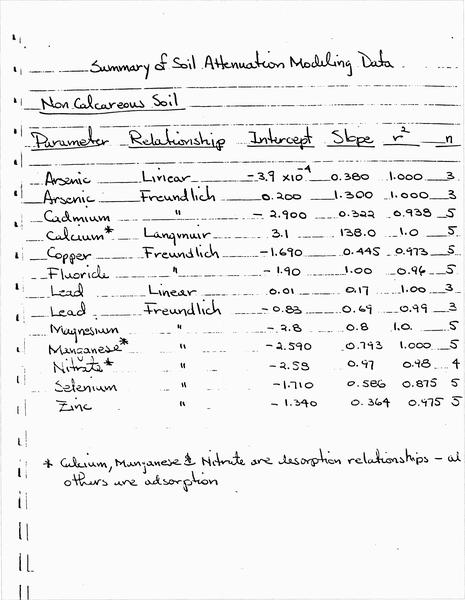 Summary of Soil Attenuation Modeling Data
Non Calcareous Soil
Parameter Relationship Intercept Slope r² n
Arsenic Linear -3.9 x10⁻⁴ 0.380 1.000 3
Arsenic Freundlich 0.200 1.300 1.000 3
Cadmium " - 2.900 0.322 0.938 5
Calcium* Langmuir 3.1 138.0 1.0 5
Copper Freundlich -1.690 0.445 0.973 5
Fluoride " - 1.90 1.00 0.96 5
Lead Linear 0.01 0.17 1.00 3
Lead Freundlich -0.83 0.69 0.99 3
Magnesium " -2.8 0.8 1.0 5
Manganese* " -2.590 0.793 1.000 5
Nitrate* " -2.53 0.97 0.98 4
Selenium " -1.710 0.586 0.875 5
Zinc " - 1.340 0.364 0.975 5
* Calcium, Manganese & Nitrate are desorption relationships - al
others are adsorption